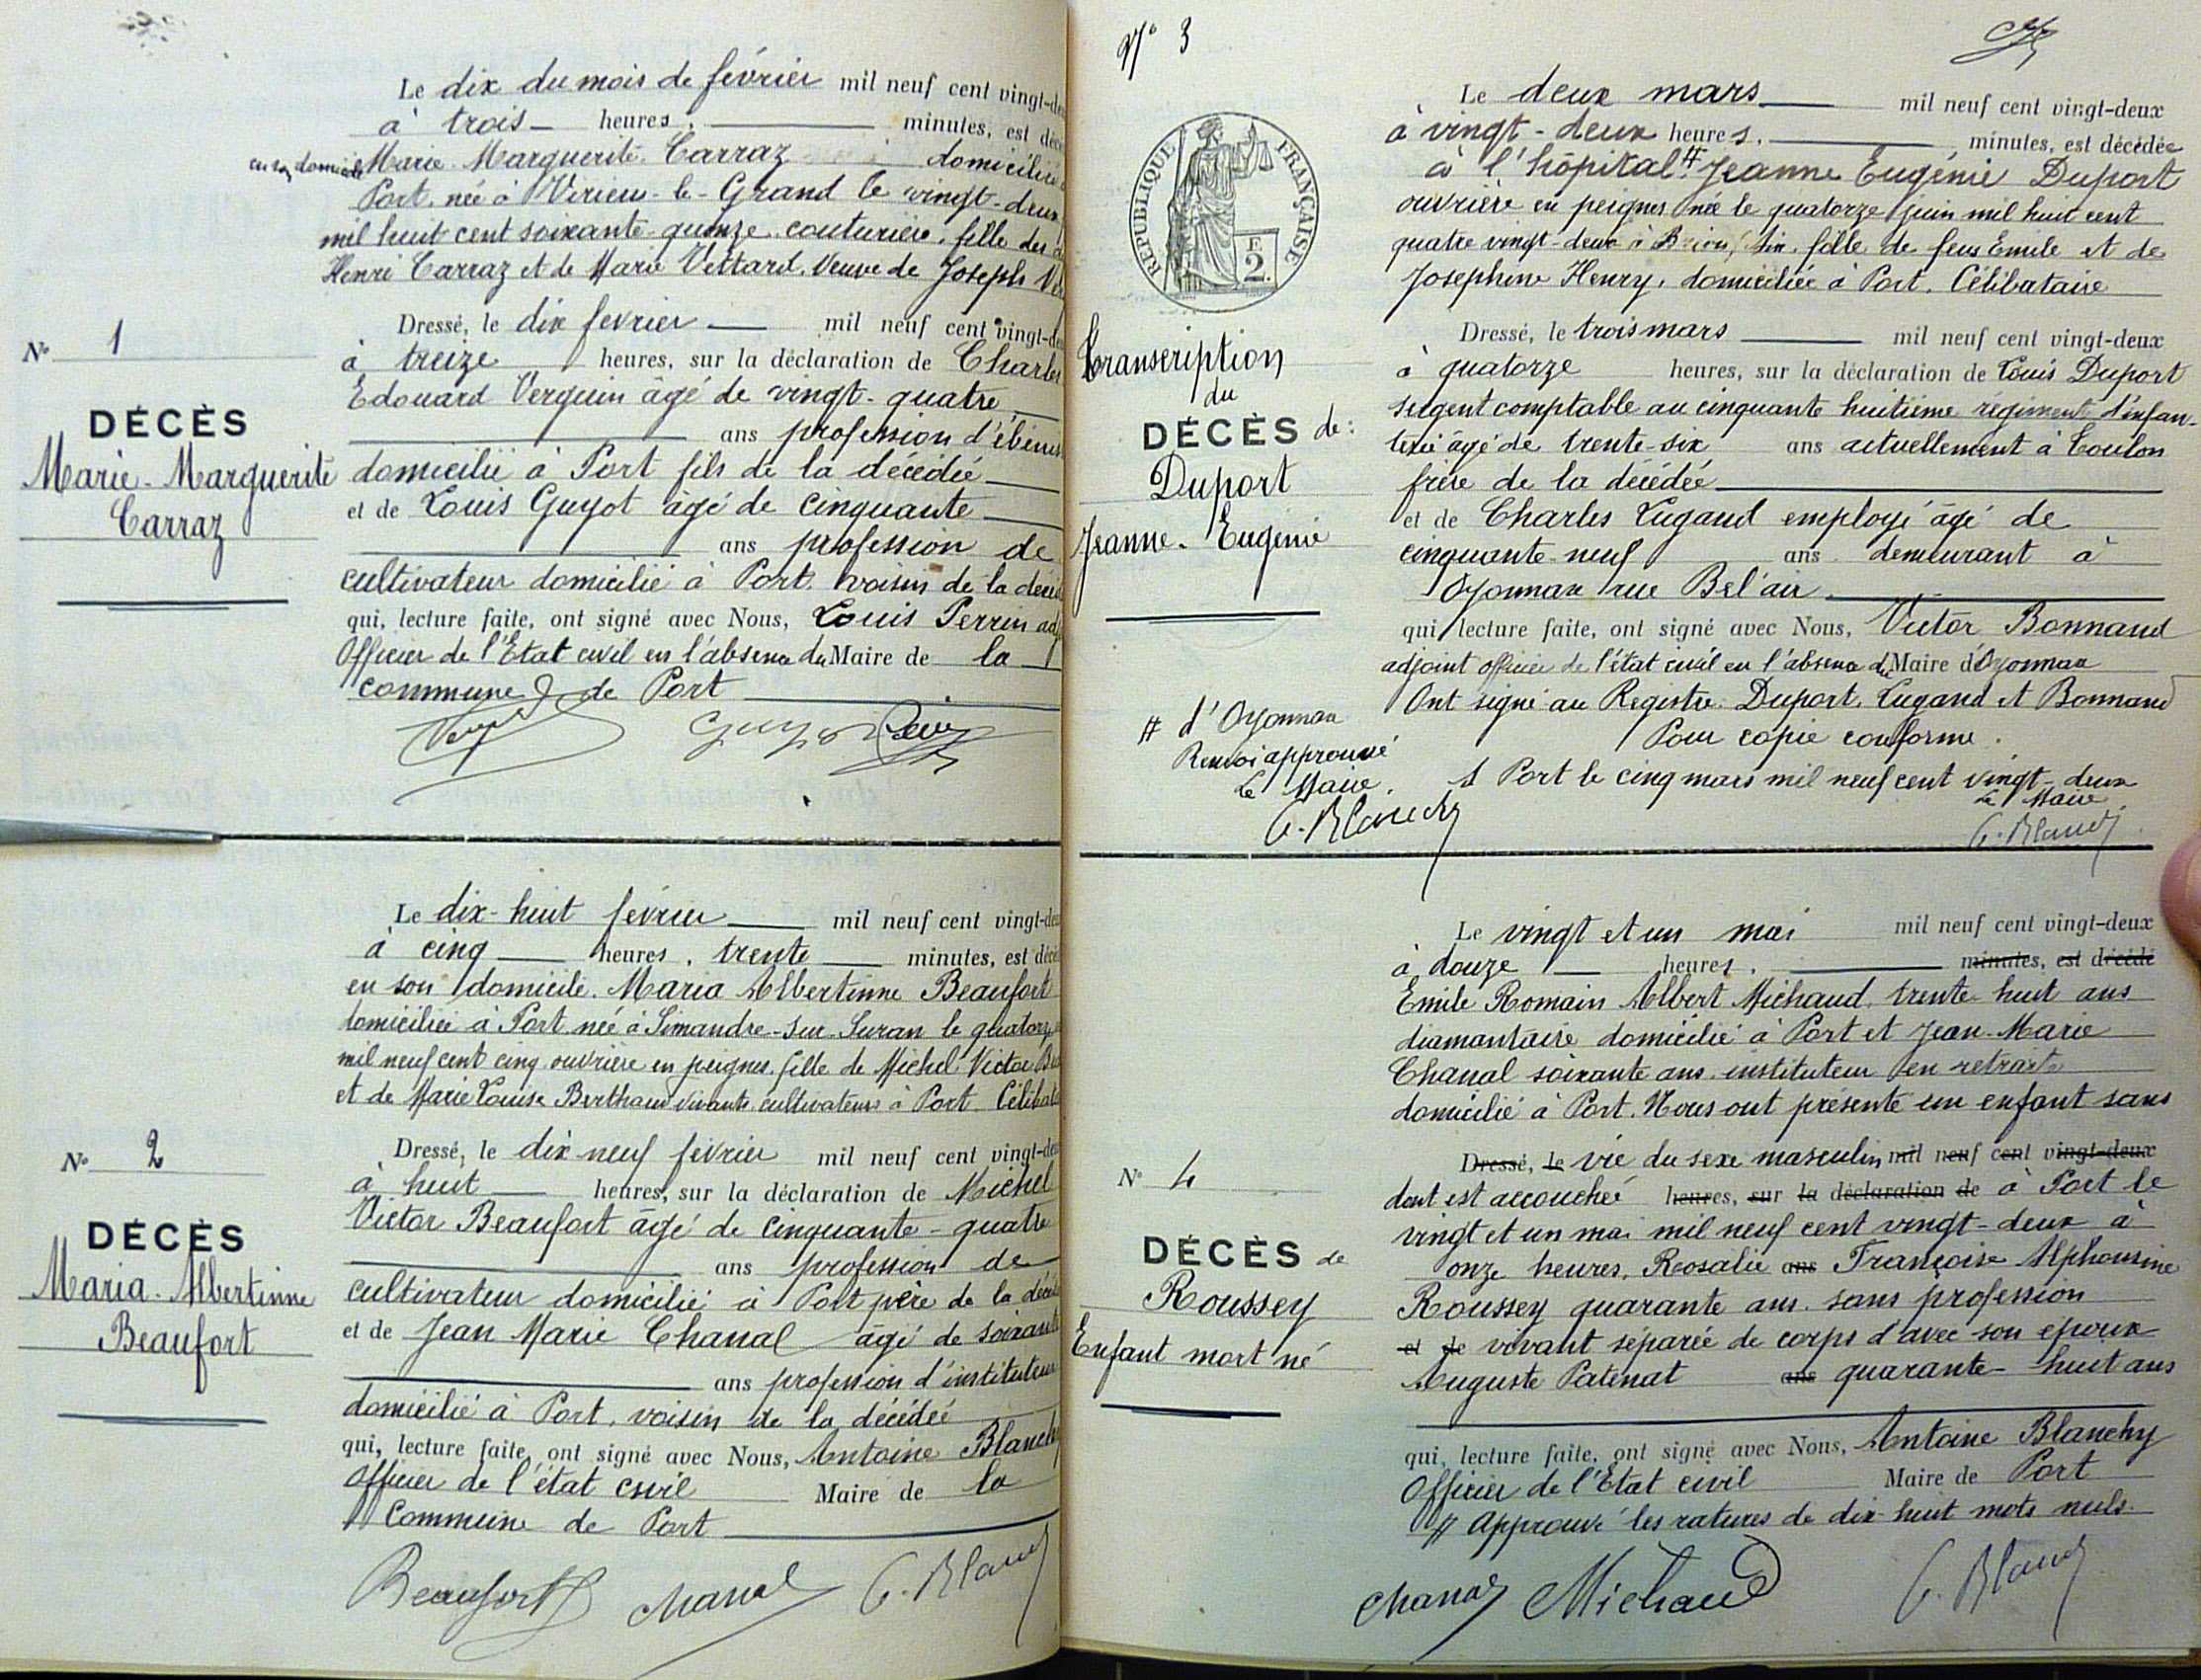 Le dix du mois de février mil neuf cent vingt-deu
à trois heures, minutes, est décé
en son domicile Marie-Marguerite Carraz domiciliée
Port, née à Virieu-le-Grand le vingt-deux
mil huit cent soixante-quinze, couturière, fille de
Henri Carraz et de Marie Vettard, Veuve de Joseph Ver
Dressé, le dix fevrier mil neuf cent vingt-de
à treize heures, sur la déclaration de Charles
N° 1
Edouard Verguin âgé de vingt-quatre
DÉCÈS
ans profession d'ébénis
Marie-Marguerite
Carraz
domicilié à Port fils de la décédée
et de Louis Guyot âgé de cinquante
ans profession de
cultivateur domicilié à Port, voisin de la décéd
qui, lecture faite, ont signé avec Nous, Louis Perrin adj
Officier de l'Etat civil en l'absence du Maire de la
commune de Port
Le dix-huit février mil neuf cent vingt-deu
à cinq heures, trente minutes, est décé
en son domicile. Maria Albertinne Beaufort
domiciliée à Port née à Simandre-sur-Suran le quatorze
mil neuf cent cinq ouvrière en peignes, fille de Michel Victor Be
et de Marie Louise Berthaud vivants cultivateurs à Port Célibat
Dressé, le dix-neuf février mil neuf cent vingt-de
N° 2
à huit heures, sur la déclaration de Michel
Victor Beaufort âgé de cinquante-quatre
DÉCÈS
ans profession de
Maria-Albertinne
Beaufort
cultivateur domicilié à Port père de la décéd
et de Jean Marie Chanal âgé de soixante
ans profession d'instituteur
domicilié à Port, voisin de la décédée
qui, lecture faite, ont signé avec Nous, Antoine Blanch
Officier de l'état civil Maire de la
Commune de Port
Beaufort Chanal A. Blanchy
N° 3
Le deux mars mil neuf cent vingt-deux
à vingt-deux heures. minutes, est décédée
à l'hôpital # Jeanne Eugénie Duport
ouvrière en peignes née le quatorze juin mil huit cent
quatre vingt-deux à Brion, Ain, fille de feus Emile et de
Josephine Henry, domiciliée à Port, Célibataire
REPUBLIQUE FRANÇAISE
F. 2.
Dressé, le trois mars mil neuf cent vingt-deux
à quatorze heures, sur la déclaration de Louis Duport
sergent comptable au cinquante huitième régiment d'infan-
terie âgé de trente-six ans actuellement à Toulon
frère de la décédée
et de Charles Lugand employé âgé de
cinquante-neuf ans demeurant à
Oyonnax rue Bel'air
Transcription
du
DÉCÈS de:
Duport
Jeanne-Eugénie
qui, lecture faite, ont signé avec Nous, Victor Bonnand
adjoint officier de l'état civil en l'absence du Maire d'Oyonnax
Ont signé au Registre: Duport, Lugand et Bonnand
Pour copie conforme.
A Port le cinq mars mil neuf cent vingt-deux
Le Maire
A. Blanchy
# d'Oyonnax
Renvoi approuvé
Le Maire.
A. Blanchy
Le vingt et un mai mil neuf cent vingt-deux
à douze heures, minutes, est décédé
Emile Romain Albert Michaud, trente-huit ans
diamantaire domicilié à Port et Jean-Marie
Chanal soixante ans instituteur en retraite
domicilié à Port. Nous ont présenté un enfant sans
Dressé, le vie du sexe masculin mil neuf cent vingt-deux
N° 4
dont est accouchée heures, sur la déclaration de à Port le
vingt et un mai mil neuf cent vingt-deux à
DÉCÈS de
onze heures, Rosalie ans Françoise Alphonsine
Roussey
Enfant mort né
Roussey quarante ans, sans profession
et de vivant séparée de corps d'avec son époux
Auguste Patenat ans quarante-huit ans
qui, lecture faite, ont signé avec Nous, Antoine Blanchy
Officier de l'Etat civil Maire de Port
# Approuvé les ratures de dix-huit mots nuls.
Chanal Michaud A. Blanchy